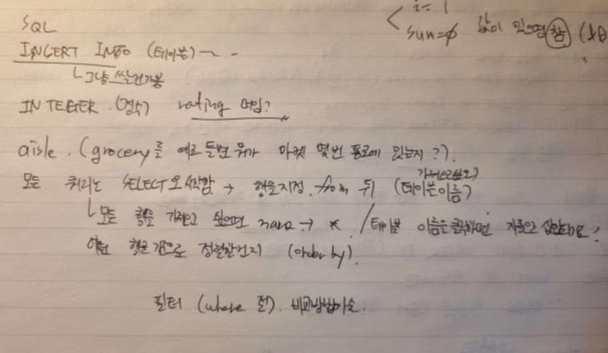 i=1
sum=0 값이 있으면 참
SQL
INSERT INTO (테이블)~ - -
그냥 쓰는건가봄
INTEGER (정수) rating 타입?
aisle. (grocery를 예로 들면 우유가 마켓 몇번 통로에 있는지?).
모든 쿼리는 SELECT으로 시작함 → 행을지정. from 뒤 (테이블이름)
모든 행을 가져오고 싶으면 → * / 테이블 이름은
어떤 행을 기준으로 정렬할건지 (order by).
필터 (where 절). 비교방법기술.